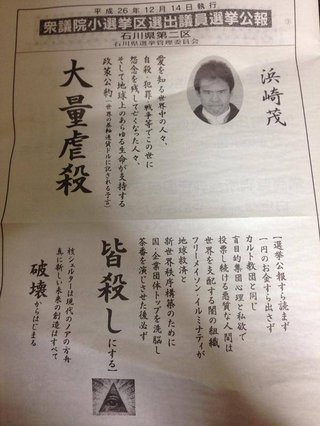 平成26年12月14日執行
衆議院小選挙区選出議員選挙公報
石川県第二区
石川県選挙管理委員会
浜崎茂
愛を知る世界中の人々、
自殺・犯罪・戦争等でこの世に
怨念を残して亡くなった人々、
そして地球上のあらゆる生命が支持する
政策公約
大量虐殺
【選挙公報すら読まず
一円のお金すら出さず
カルト教団と同じ
盲目的集団心理と私欲で
投票し続ける悪質な人間は
世界を支配する闇の組織
フリーメイソン・イルミナティが
地球救済と
新世界秩序構築のために
国・企業・団体トップを洗脳し
茶番を演じさせた後必ず
皆殺しにする】
核シェルターは現代のノアの方舟
真に新しい未来の創造はすべて
破壊からはじまる